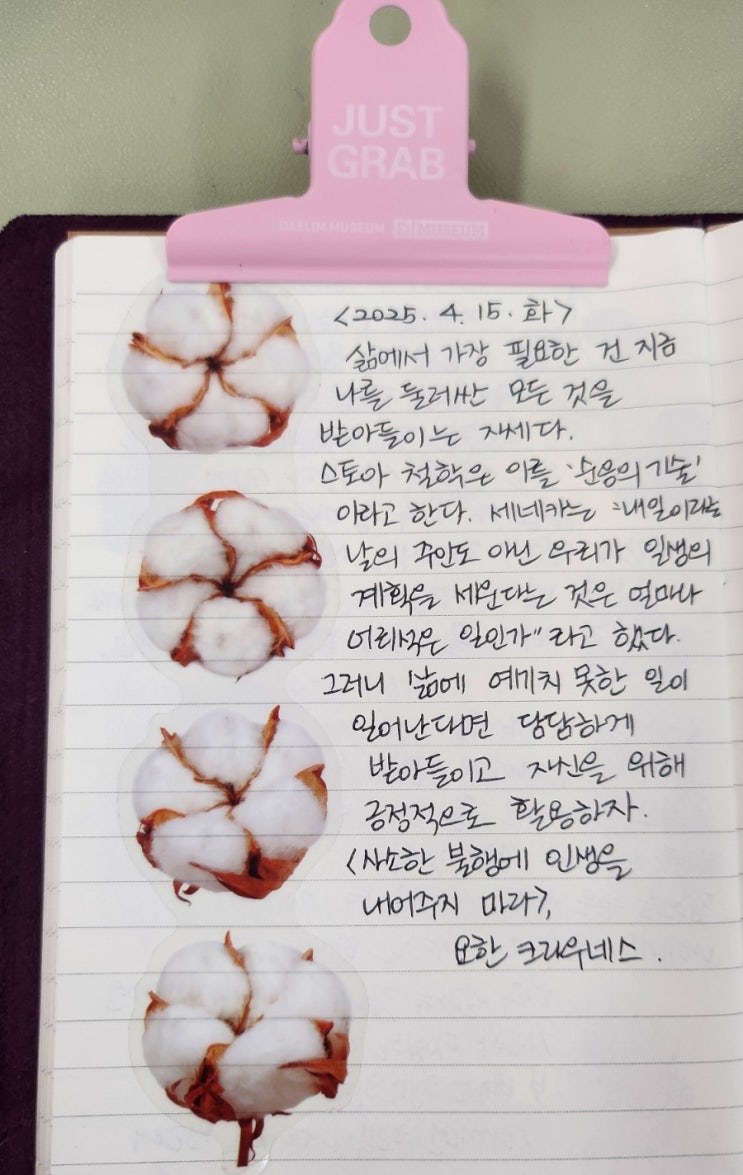 JUST
GRAB
DAELIM MUSEUM D MUSEUM
<2025. 4. 15. 화>
삶에서 가장 필요한 건 지금
나를 둘러싼 모든 것을
받아들이는 자세다.
스토아 철학은 이를 '순응의 기술'
이라고 한다. 세네카는 "내일이라는
날의 주인도 아닌 우리가 일생의
계획을 세운다는 것은 얼마나
어리석은 일인가" 라고 했다.
그러니 삶에 예기치 못한 일이
일어난다면 당당하게
받아들이고 자신을 위해
긍정적으로 활용하자.
<사소한 불행에 인생을
내어주지 마라>,
요한 크라우네스.